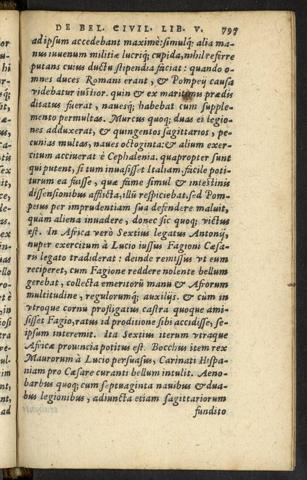 DE BEL. CIVIL. LIB. V. 797
ad ipsum accedebant maximè: simulq; alia ma-
nus iuuenum militiæ lucriq; cupida, nihil referre
putans cuius ductu stipendia faciat: quando o-
mnes duces Romani erant, & Pompeij causa
videbatur iustior. quin & ex maritima præ-
ditatus fuerat, nauesq; habebat cum supple-
mento permultas. Murcus quoq; duas ei legio-
nes adduxerat, & quingentos sagittarios, pe-
cunias multas, naues octoginta: & alium exer-
citum acciuerat è Cephalenia. quapropter sunt
qui putent, si tum inuasisset Italiam, facile poti-
turum ea fuisse, quæ fame simul & intestinis
dissensionibus afflicta, illū respiciebat. sed Pom-
peius per imprudentiam sua defendere maluit,
quàm aliena inuadere, donec sic quoq; victus
est. In Africa verò Sextius legatus Antonij,
nuper exercitum à Lucio iussus Fagioni Cæsa-
ris legato tradiderat: deinde remissus vt eum
reciperet, cum Fagione reddere nolente bellum
gerebat, collecta emeritorū manu & Afrorum
multitudine, regulorumq; auxilijs. & cùm in
vtroque cornu profligatus castra quoque ami-
sisset Fagio, ratus id proditione sibi accidisse, se-
ipsum interemit. Ita Sextius iterum vtraque
Africæ prouincia potitus est. Bocchus item rex
Maurorum à Lucio persuasus, Carinati Hispa-
niam pro Cæsare curanti bellum intulit. Aeno-
barbus quoq; cum septuaginta nauibus & dua-
bus legionibus, adiuncta etiam sagittariorum
fundito